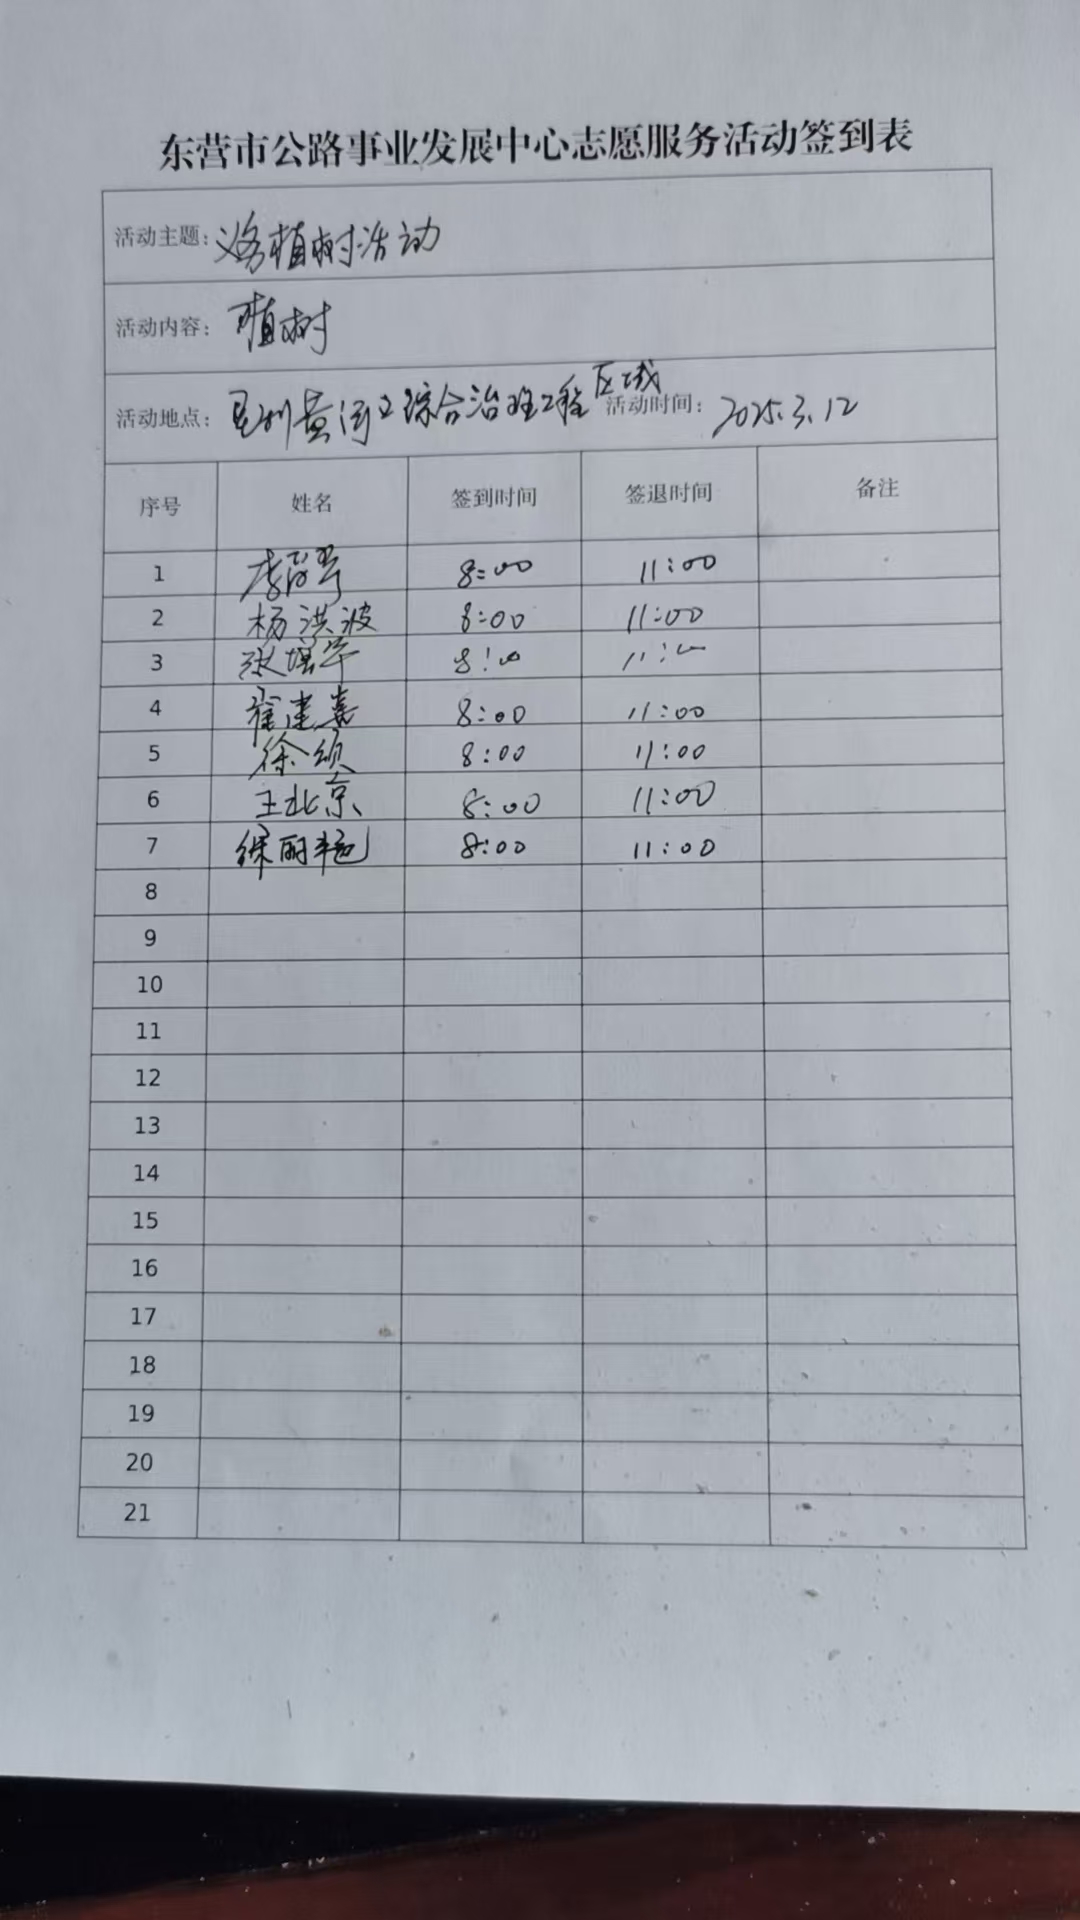 东营市公路事业发展中心志愿服务活动签到表
活动主题：义务植树活动
活动内容：植树
活动地点：垦利黄河口综合治理工程区域 活动时间：2025.3.12
序号 姓名 签到时间 签退时间 备注
1 李 8:00 11:00
2 杨洪波 8:00 11:00
3 张增军 8:00 11:00
4 崔建喜 8:00 11:00
5 徐颂 8:00 11:00
6 王北京 8:00 11:00
7 徐丽艳 8:00 11:00
8
9
10
11
12
13
14
15
16
17
18
19
20
21